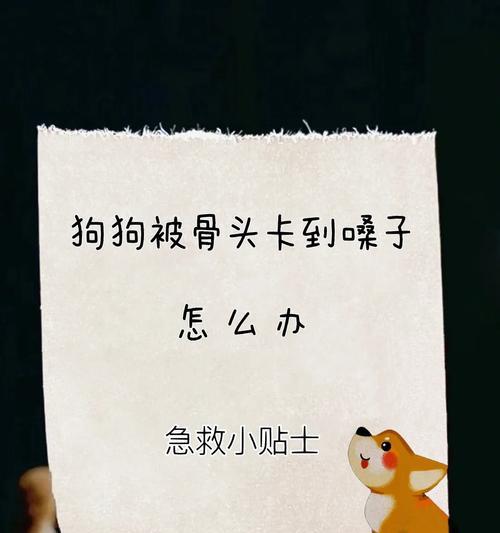 狗狗被骨头卡到嗓子
怎么办
急救小贴士